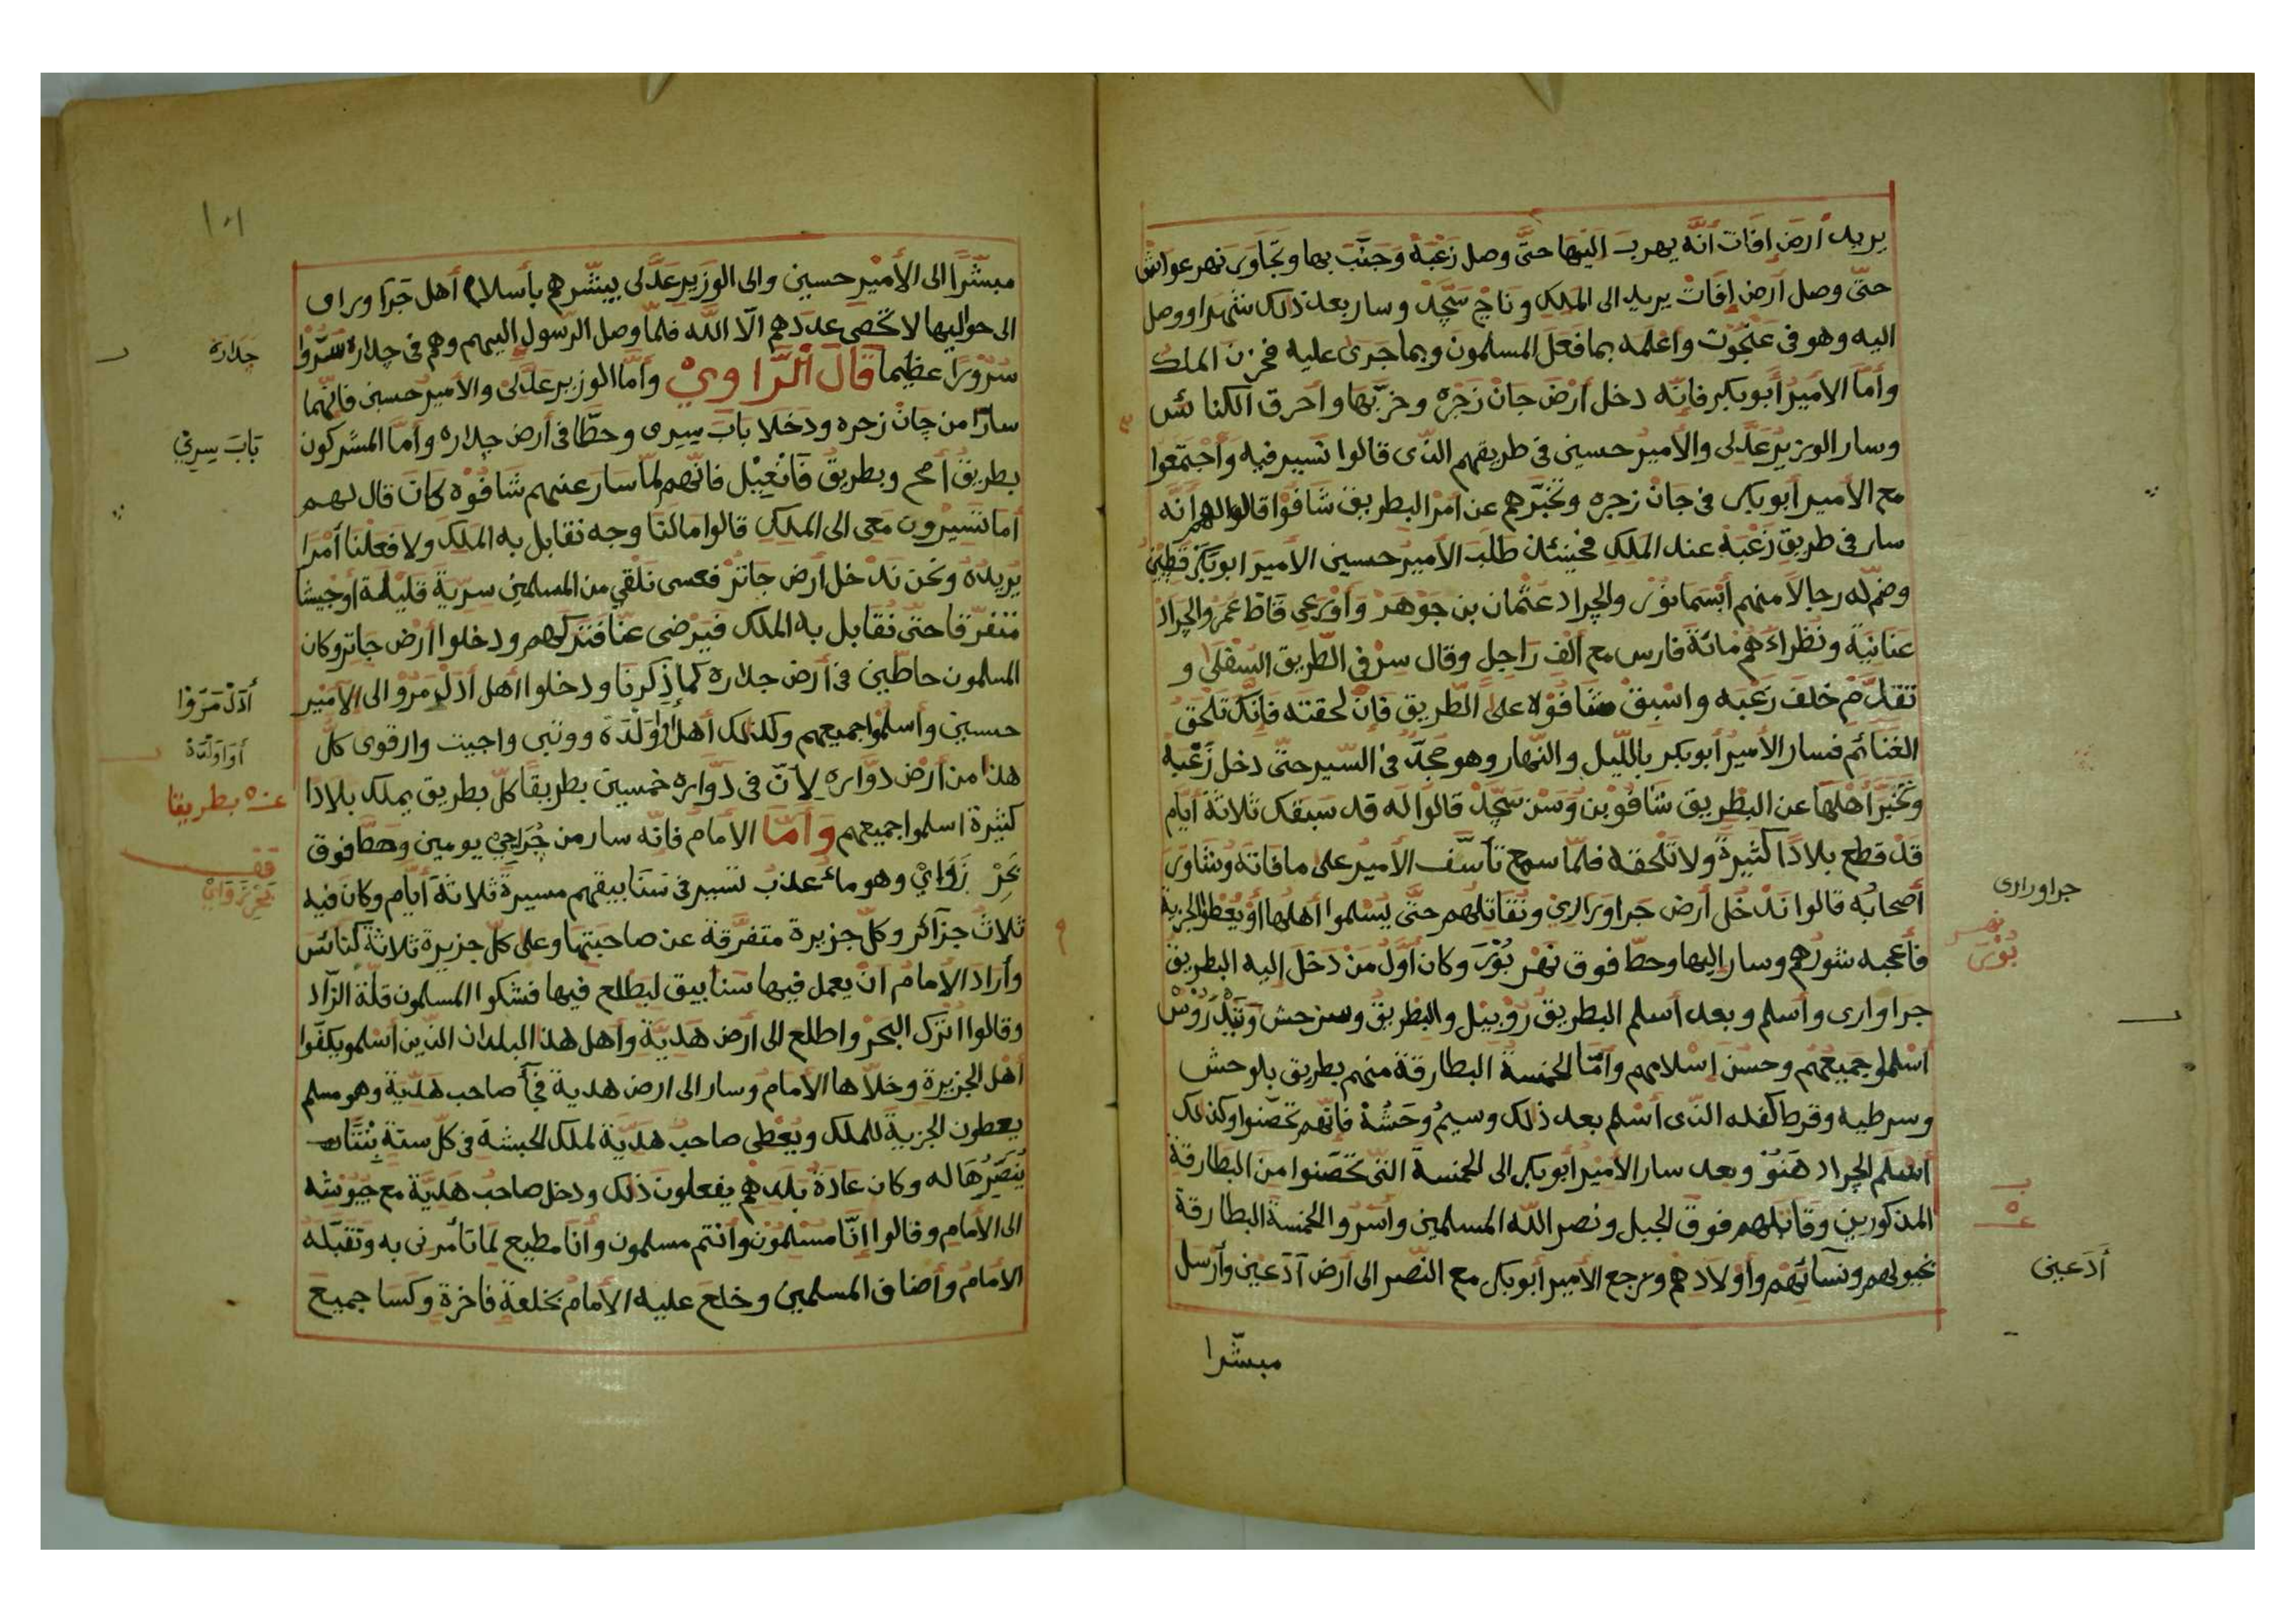 يريد أرض إفات أنّه يهرب اليها حتّى وصل زغبة وجنّب بها وتجاوز نهر عواش
حتّى وصل أرض إفات يريد الى الملك وناج سجّد وسار بعد ذلك شهرا ووصل
اليه وهو في عنجوت وأعلمه بما فعل المسلمون وبما جرى عليه فحزن الملك
وأمّا الأمير أبوبكر فانّه دخل أرض جان زجره وخرّبها وأحرق الكنائس
وسار الوزير عدّلى والأمير حسين في طريقهم الذّى قالوا نسير فيه وأجتمعوا
مع الأمير أبوبكر في جان زجره وتخبّرهم عن أمر البطريق شافوا قالوا لهم أنّه
سار في طريق زغبة عند الملك فحينئذ طلب الأمير حسين الأمير ابوبكر قطين
وضمّ له رجالا منهم أبسمانور والجراد عثمان بن جوهر وأورعى قاط عمر والجراد
عنانية ونظراءهم مائة فارس مع ألف راجل وقال سر في الطّريق السفلى و
تقدّم خلف زغبه واسبق شافوه على الطّريق فإن لحقته فإنّك تلحق
الغنائم فسار الأمير أبوبكر بالليل والنّهار وهو مجدّ في السّير حتّى دخل زغبة
وتخبّر أهلها عن البطريق شافو بن وسن سجّد قالوا له قد سبقك ثلاثة أيّام
قد قطع بلادًا كثيرة ولا تلحقه فلمّا سمع تأسّف الأمير على ما فاته وشاور
أصحابه قالوا ندخل أرض جراورارى ونقاتلهم حتّى يسلموا أهلها أو يعطوا الجزية
فأعجبه شورهم وسار اليها وحطّ فوق نهر بور وكان أوّل من دخل إليه البطريق
جراوارى وأسلم وبعد أسلم البطريق روبيل والبطريق وسنزحش وتيدروس
أسلموا جميعهم وحسن إسلامهم وأمّا الخمسة البطارقة منهم بطريق بلوحش
وسرطيه وقرط كفله الذّى أسلم بعد ذلك وسيم وحشة فانّهم تحصّنوا وكذلك
أسلم الجراد هنو وبعد سار الأمير أبوبكر الى الخمسة التّى تحصّنوا من البطارقة
المذكورين وقاتلهم فوق الجبل ونصر الله المسلمين وأسروا الخمسة البطارقة
بخيولهم ونسائهم وأولادهم ورجع الأمير أبوبكر مع النّصر الى أرض آدعين وأرسل
مبشّرا
جراورارى
نهر
بور
أدعين
١٠١
مبشّرًا الى الأمير حسين والى الوزير عدّلى يبشّرهم بأسلام أهل جرا وراى
الى حواليها لا تحصى عددهم الّا الله فلمّا وصل الرّسول اليهم وهم في جداره سرّوا
سرورا عظيما قال الرّاوي وأمّا الوزير عدّلى والأمير حسين فانّهما
سارا من جان زجره ودخلا باب سيرى وحطّا في أرض جداره وأمّا المشركون
بطريق أمح وبطريق فانعيبل فانّهم لمّا سار عنهم شافوه كان قال لهم
أما تسيرون معى الى الملك قالوا مالنا وجه نقابل به الملك ولا فعلنا أمرا
يريده ونحن ندخل أرض جاتر فعسى نلقي من المسلمين سرّية قليلة أو جيشا
متفرّقا حتّى نقابل به الملك فيرضى عنّا فتركهم ودخلوا أرض جاتر وكان
المسلمون حاطّين في أرض جداره كما ذكرنا ودخلوا أهل أدل مروا الى الأمير
حسين وأسلموا جميعهم وكذلك أهل أوا ولدة ووتبى واجيت وارقوى كلّ
هذا من أرض دوّاره لأنّ في دوّاره خمسين بطريقًا كلّ بطريق يملك بلادا
كثيرة اسلموا جميعهم وأمّا الأمام فانّه سار من جراجي يومين وحطّ فوق
بحر زواي وهو مائه عذب تسير في سنابيقهم مسيرة ثلاثة أيّام وكان فيه
ثلاث جزآئر وكلّ جزيرة متفرّقة عن صاحبتها وعلى كلّ جزيرة ثلاثة كنائس
وأراد الأمام ان يعمل فيها سنابيق ليطلع فيها فشكوا المسلمون قلّة الزّاد
وقالوا اترك البحر واطلع الى أرض هديّة وأهل هذ البلدان الذّين أسلمو يكفّوا
أهل الجزيرة وخلّاها الأمام وسار الى ارض هدية فجآ صاحب هدّية وهو مسلم
يعطون الجزية للملك ويعطى صاحب هديّة لملك الحبشة في كلّ سنة بنتا
ينصّرها له وكان عادة بلدهم يفعلون ذلك ودخل صاحب هديّة مع جيوشه
الى الأمام وقالوا إنّا مسلمون وأنتم مسلمون وأنا مطيع لما تأمرنى به وتقبّله
الأمام وأضاف المسلمين وخلع عليه الأمام بخلعة فاخرة وكسا جميع
جدارة
باب سيري
أدل مروا
أوا ولدة
بطريقا
قف
بحر زواي